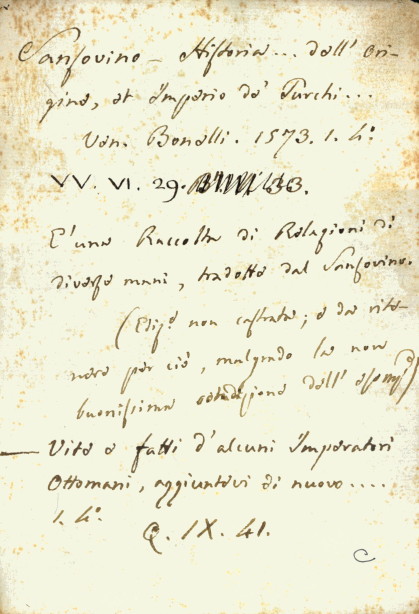 Sansovino - Historia... dell' ori-
gine, et Imperio de' Turchi...
Ven. Bonelli. 1573. 1. 4.º
VV. VI. 29. 33.
E' una Raccolta di Relazioni di
diverse mani, tradotte dal Sansovino.
(Ediz.e non castrata; e da rite-
nere per ciò, malgrado la non
buonissima condizione dell' esemp.
Vite e fatti d'alcuni Imperatori
Ottomani, aggiuntevi di nuovo....
1. 4.º
Q. IX. 41.
C